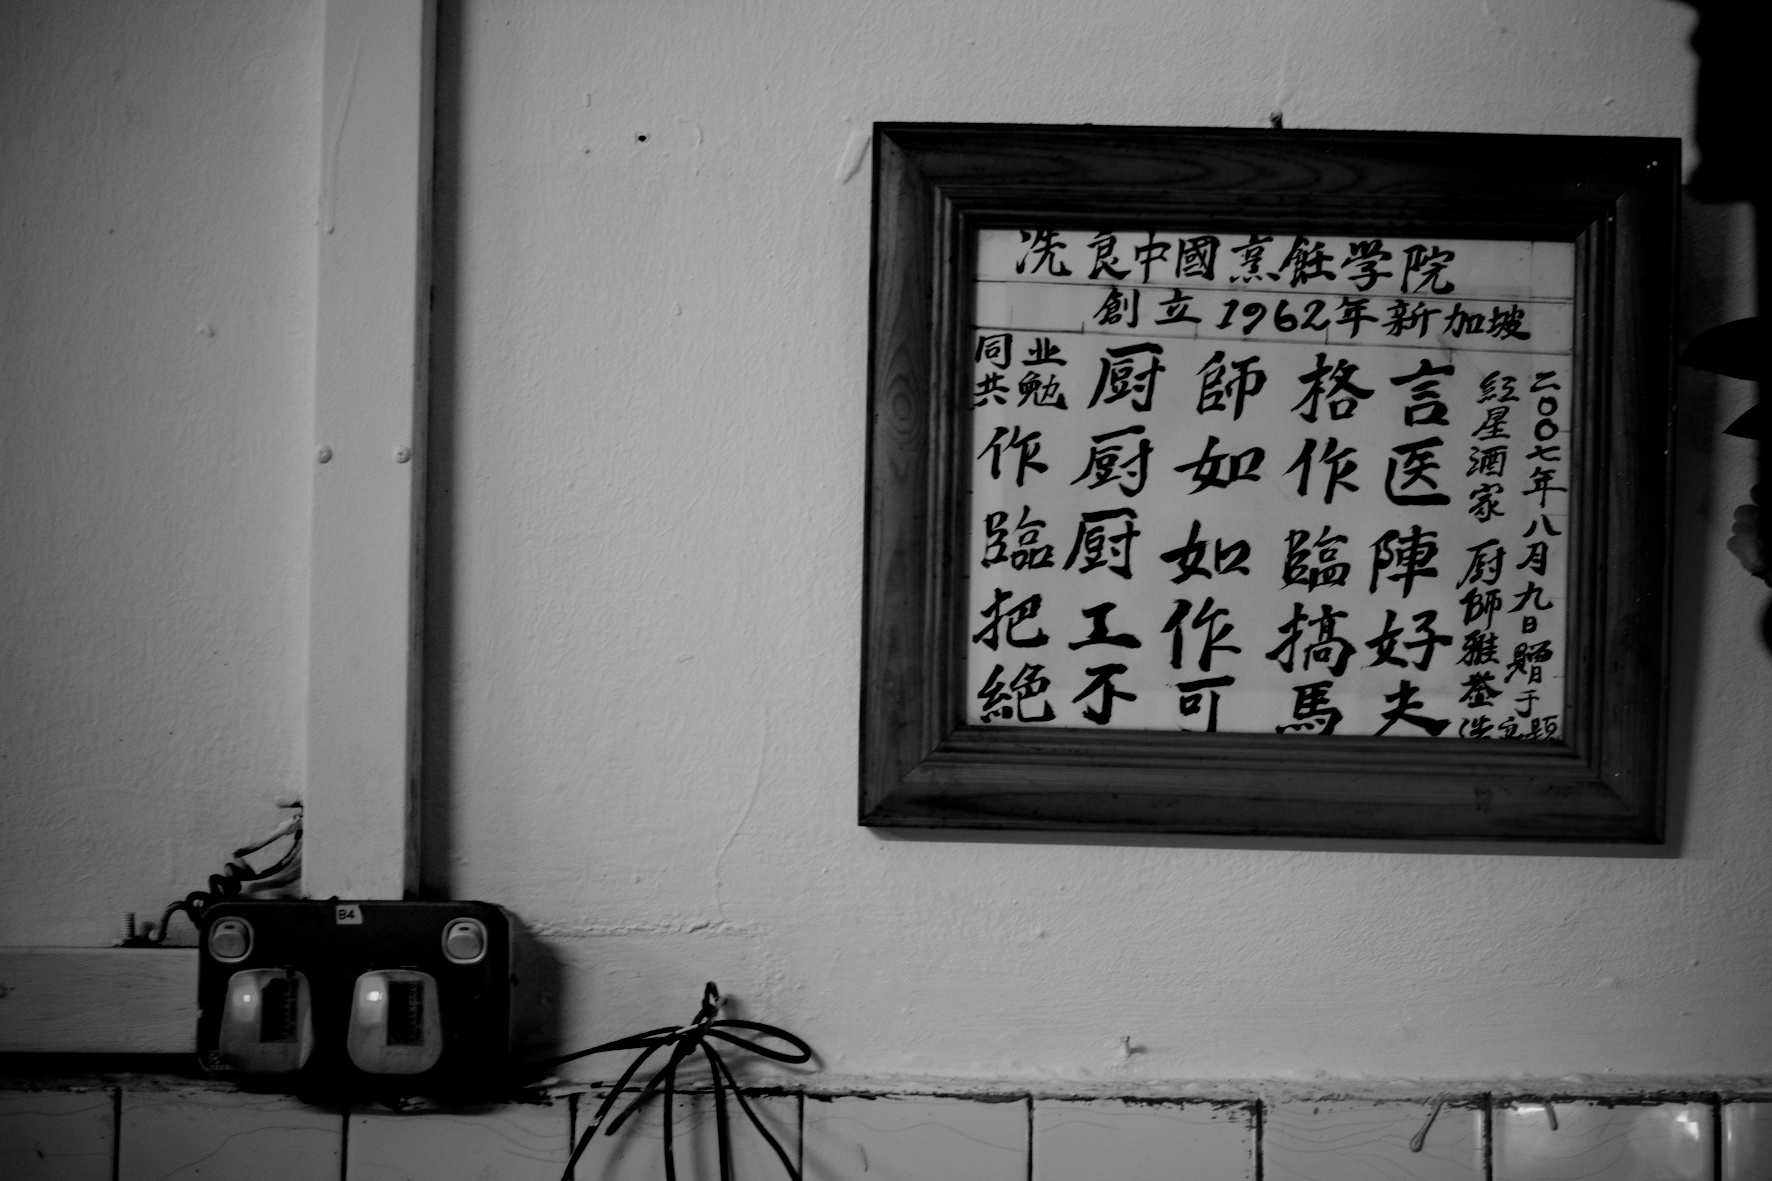 冼良中國烹飪学院
創立1962年新加坡
二〇〇七年八月九日贈于
紅星酒家 厨師雅鉴
言医陣好夫
格作臨搞馬
師如如作可
厨厨厨工不
同业
共勉
作臨把絕
B4